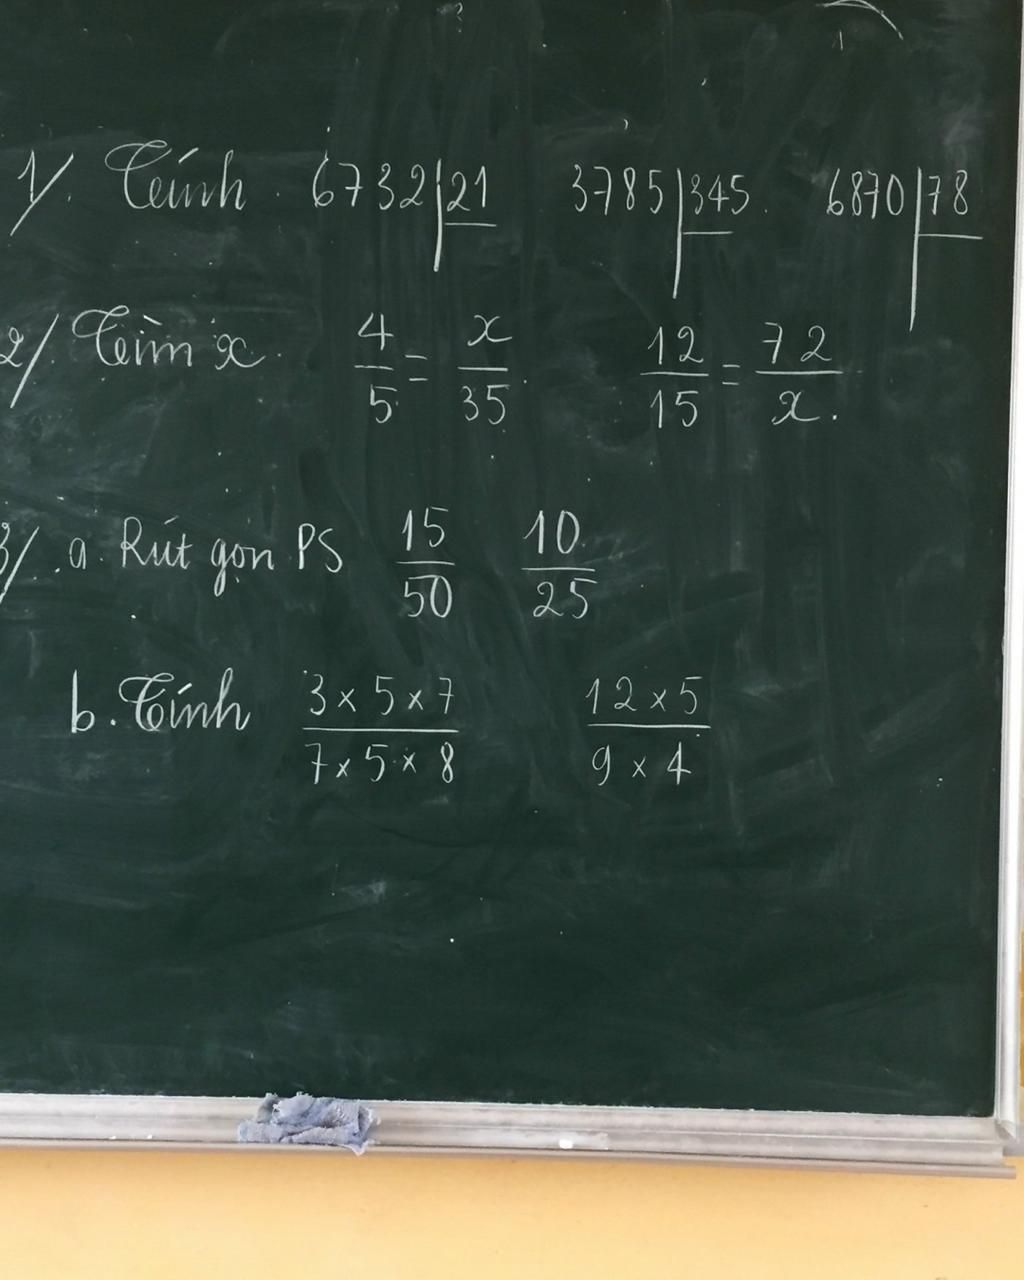 1/. Tính 6732 | 21 3785 | 345. 6870 | 78
2/ Tìm x. 4/5 = x/35. 12/15 = 72/x.
3/. a. Rút gọn PS 15/50 10/25
b. Tính 3 × 5 × 7 / 7 × 5 × 8 12 × 5 / 9 × 4